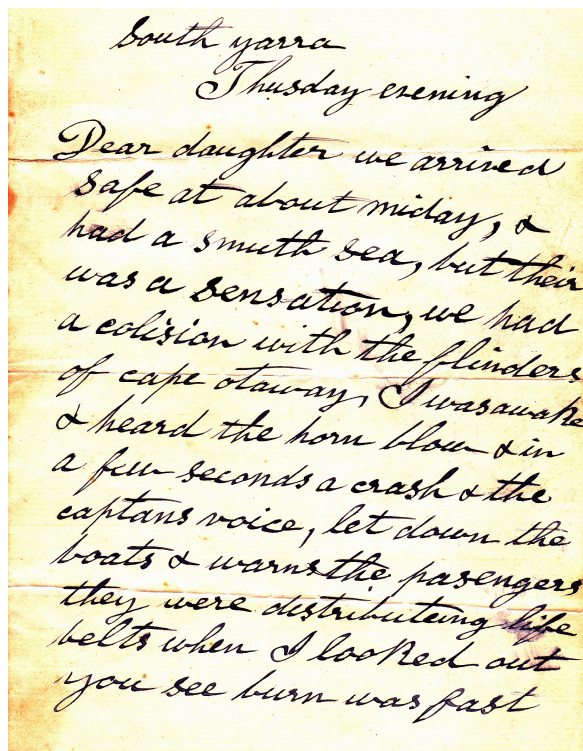 South yarra
Thusday evening
Dear daughter we arrived
safe at about miday, &
had a smuth sea, but their
was a sensation, we had
a colision with the flinders
of cape otaway, I was awake
& heard the horn blow & in
a few seconds a crash & the
captans voice, let down the
boats & warns the pasengers
they were distributeing life
belts when I looked out
you see burn was fast